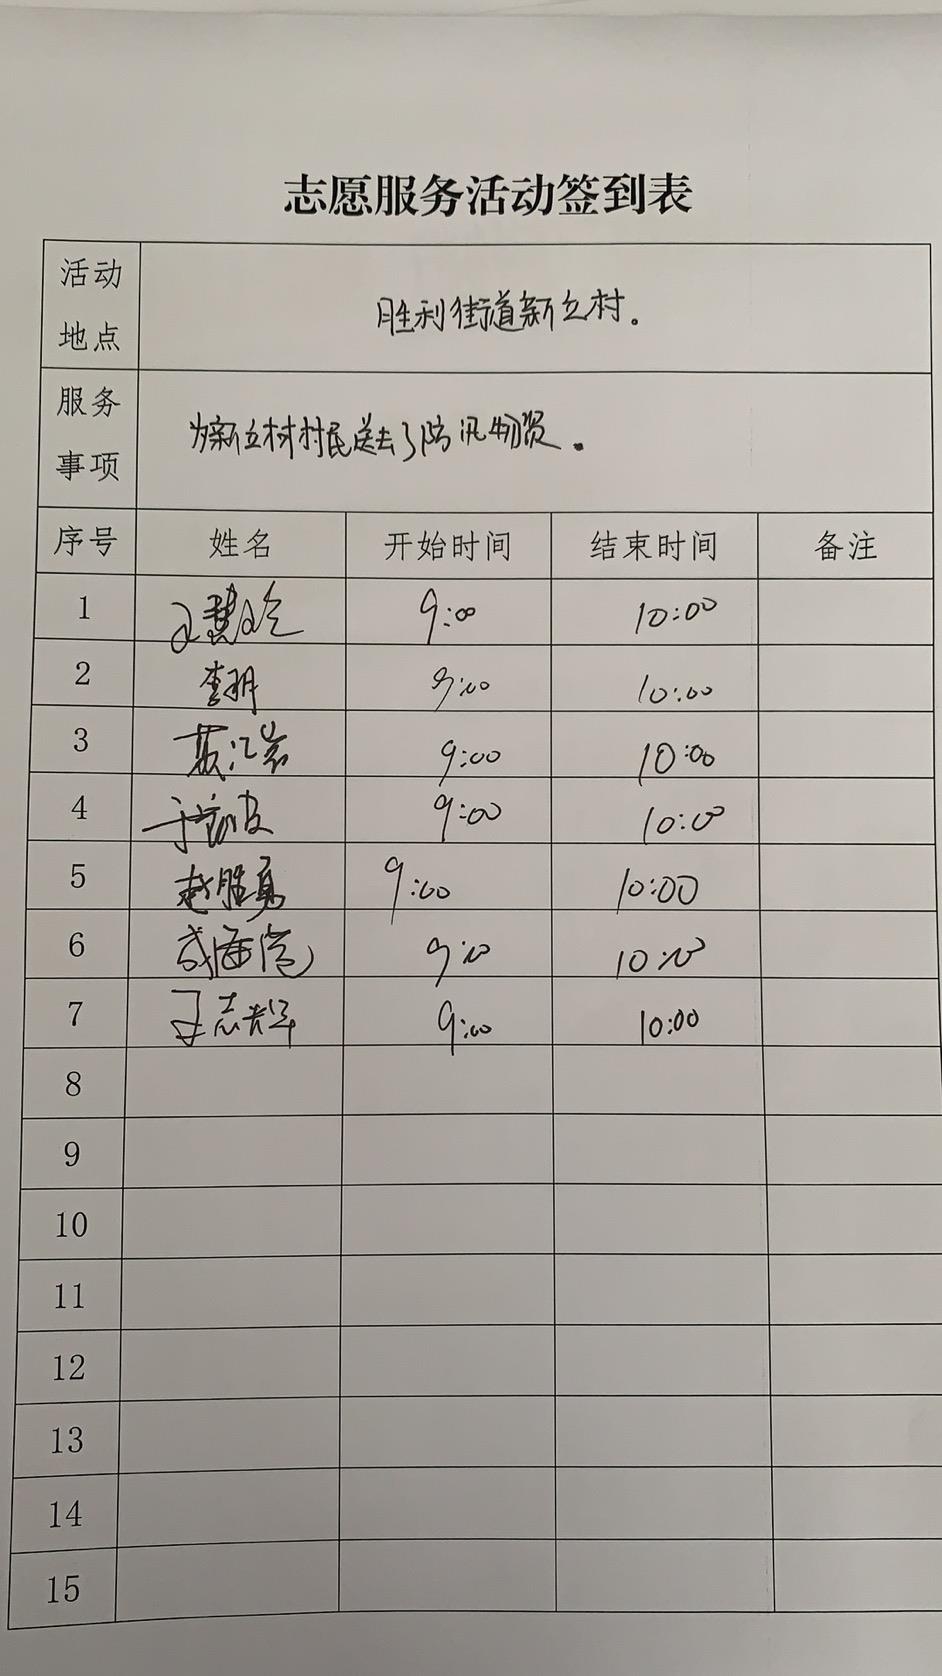 志愿服务活动签到表
活动地点 胜利街道新立村。
服务事项 为新立村村民送去了防汛物资。
序号 姓名 开始时间 结束时间 备注
1 9:00 10:00
2 李玥 9:00 10:00
3 9:00 10:00
4 9:00 10:00
5 赵胜勇 9:00 10:00
6 9:00 10:00
7 王志辉 9:00 10:00
8
9
10
11
12
13
14
15